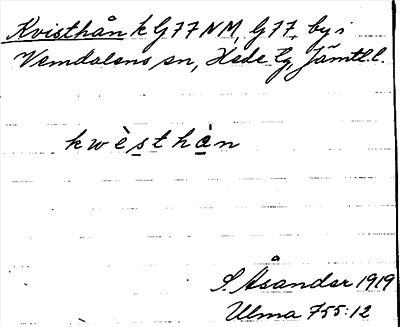 Kvisthån k G77NM, G77, by i
Vemdalens sn, Hede tg, Jämtl.l.
kwèsthàn
S. Åsander 1919
Ulma 755:12